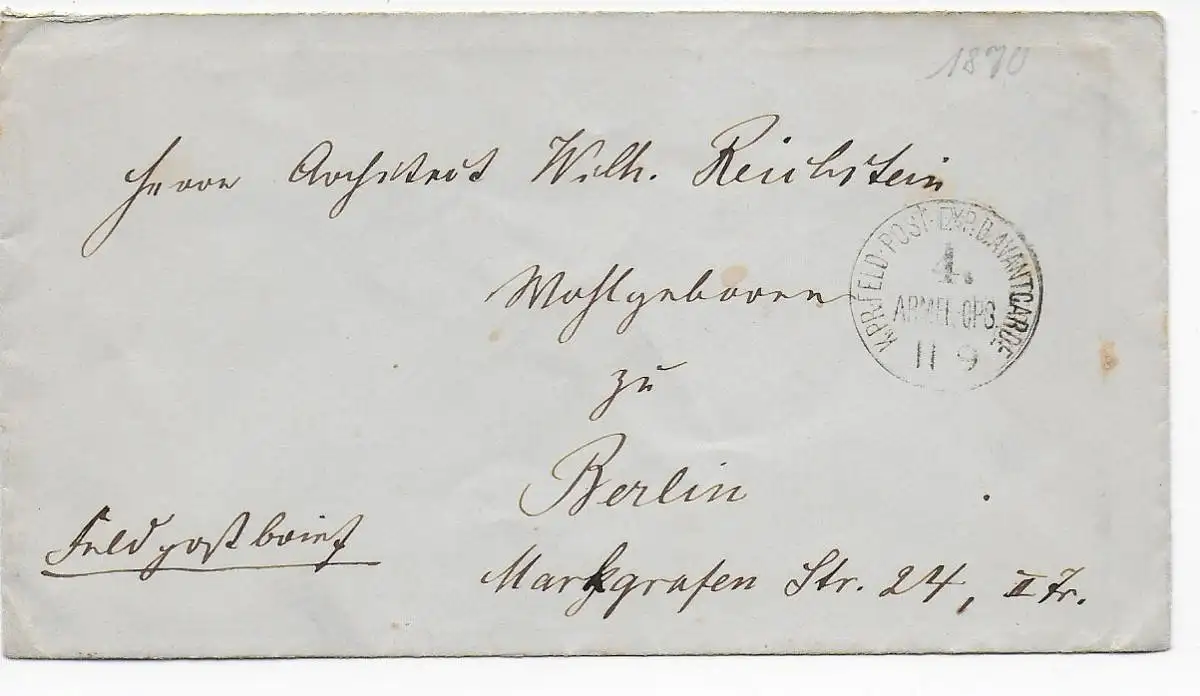 1870
Herrn Architect Wilh. Reichstein
Wohlgeboren
zu
Berlin
Markgrafen Str. 24, II Tr.
Feldpostbrief
K.PR.FELD-POST-EXP.D.AVANTGARDE
4.
ARMEE-CPS.
11 9